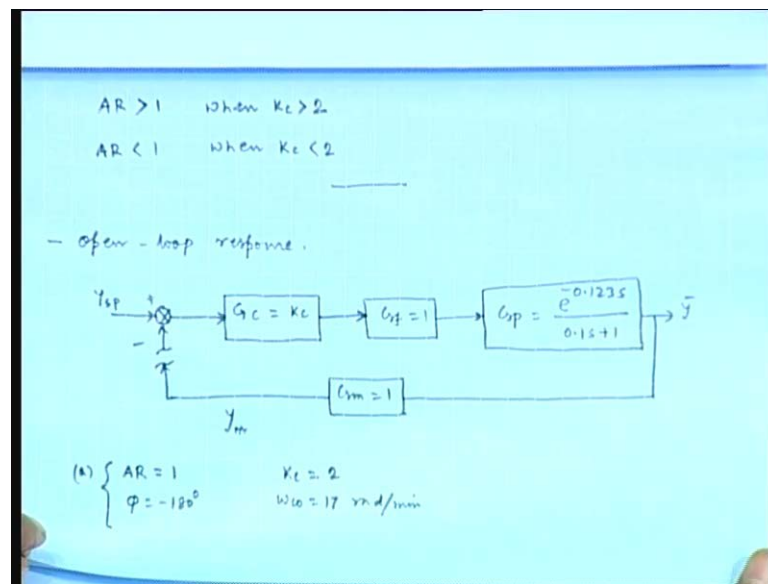 AR > 1 when Kc > 2
AR < 1 when Kc < 2
- open-loop response.
ysp + Gc = Kc Gf = 1 Gp = e^-0.123s / 0.1s+1 ȳ
-
Gm = 1
ym
(a) { AR = 1 Kc = 2
φ = -180° ωco = 17 rad/min